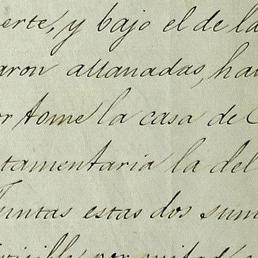 erte, y bajo el de la
aron allanadas, ha
or tome la casa de C
tamentaria la del
Juntas estas dos sum